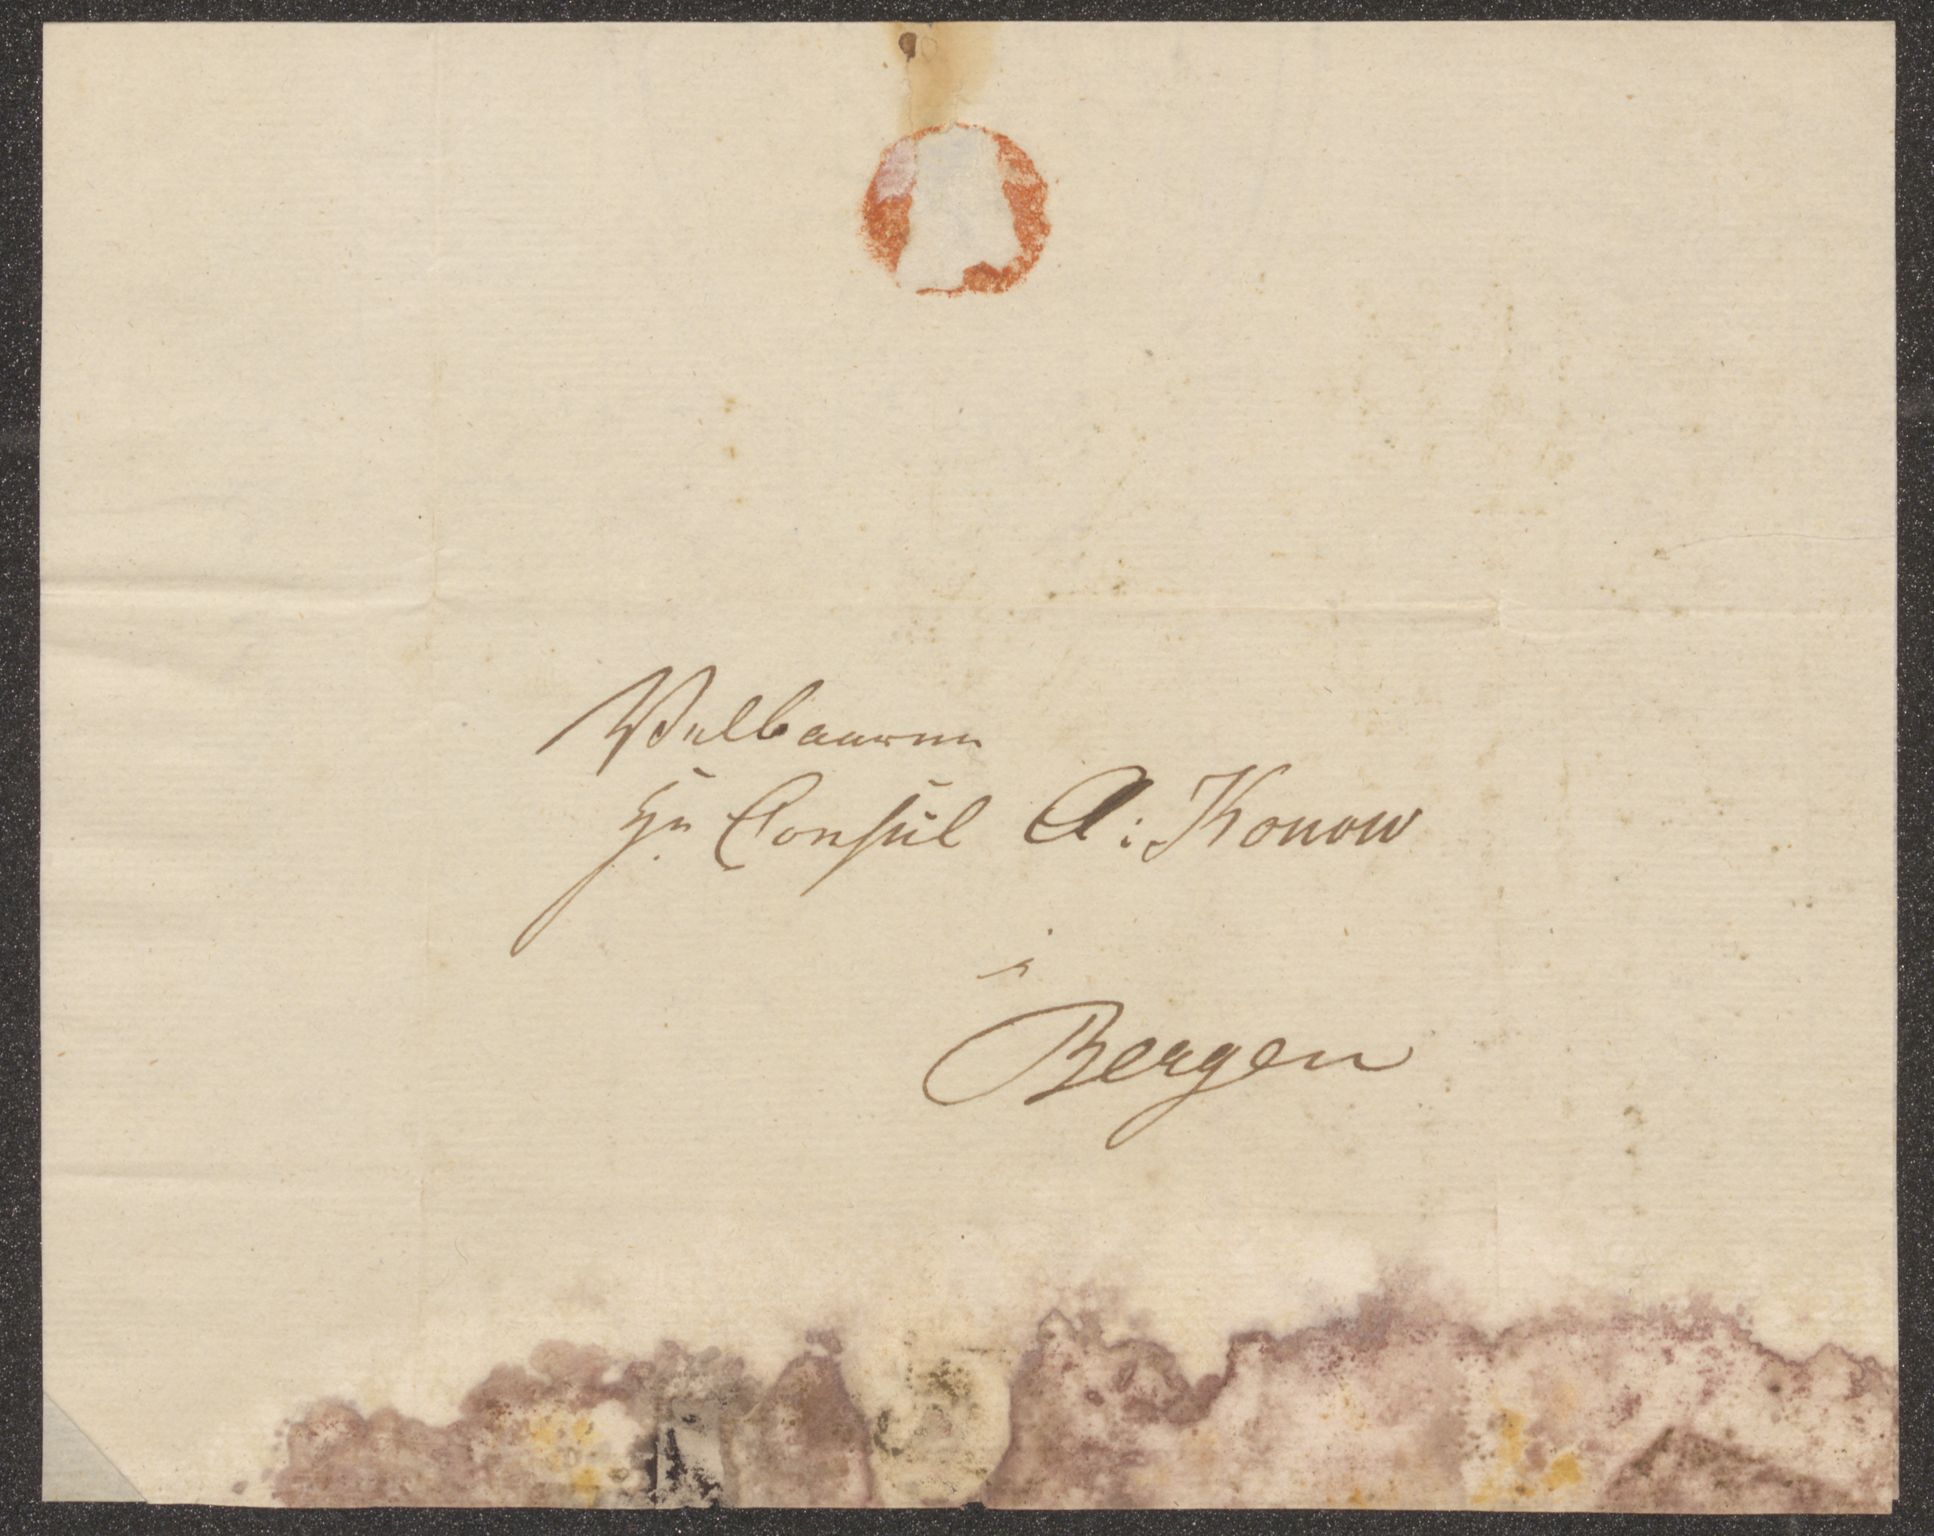 Velbaarne
Hr Consul A: Konow
i
Bergen